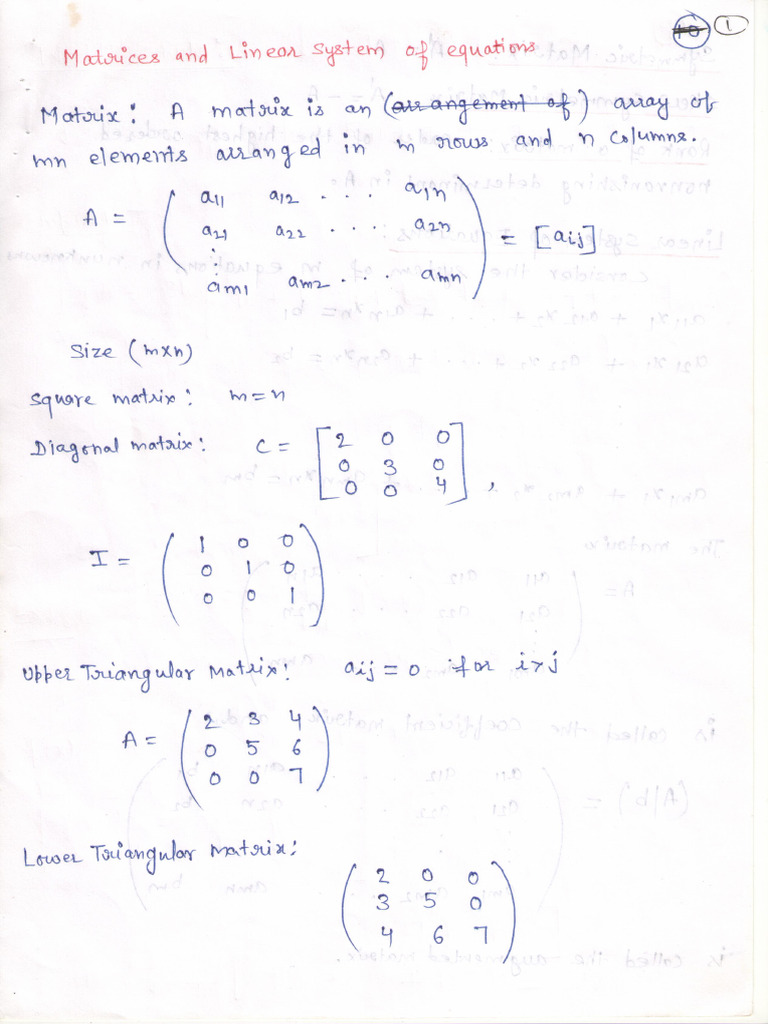 1
Matrices and Linear System of equations
Matrix: A matrix is an (arrangement of) array of
mn elements arranged in m rows and n columns.
A = ( a11 a12 . . . a1n
a21 a22 . . . a2n
⋮
am1 am2 . . . amn ) = [aij]
Size (m×n)
Square matrix: m=n
Diagonal matrix: C = [ 2 0 0
0 3 0
0 0 4 ] ,
I = ( 1 0 0
0 1 0
0 0 1 )
Upper Triangular Matrix: aij = 0 if or i>j
A = ( 2 3 4
0 5 6
0 0 7 )
Lower Triangular matrix:
( 2 0 0
3 5 0
4 6 7 )